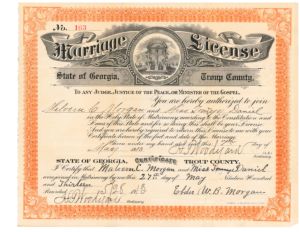 No. 163
Marriage License
State of Georgia, Troup County.
TO ANY JUDGE, JUSTICE OF THE PEACE, OR MINISTER OF THE GOSPEL.
You are hereby authorized to join
Malcom C. Morgan and Miss Daniel
in the Holy State of Matrimony according to the Constitution and
Laws of this State and for so doing this shall be your License.
And you are hereby required to return this License to me with your
Certificate hereon of the fact and date of the Marriage.
Given under my hand and seal this day of
May
STATE OF GEORGIA, CERTIFICATE TROUP COUNTY.
I Certify that Malcom C. Morgan and Miss Daniel
were joined in Matrimony by me this 27th day of May Nineteen Hundred
and Thirteen
Recorded Elder W. B. Morgan